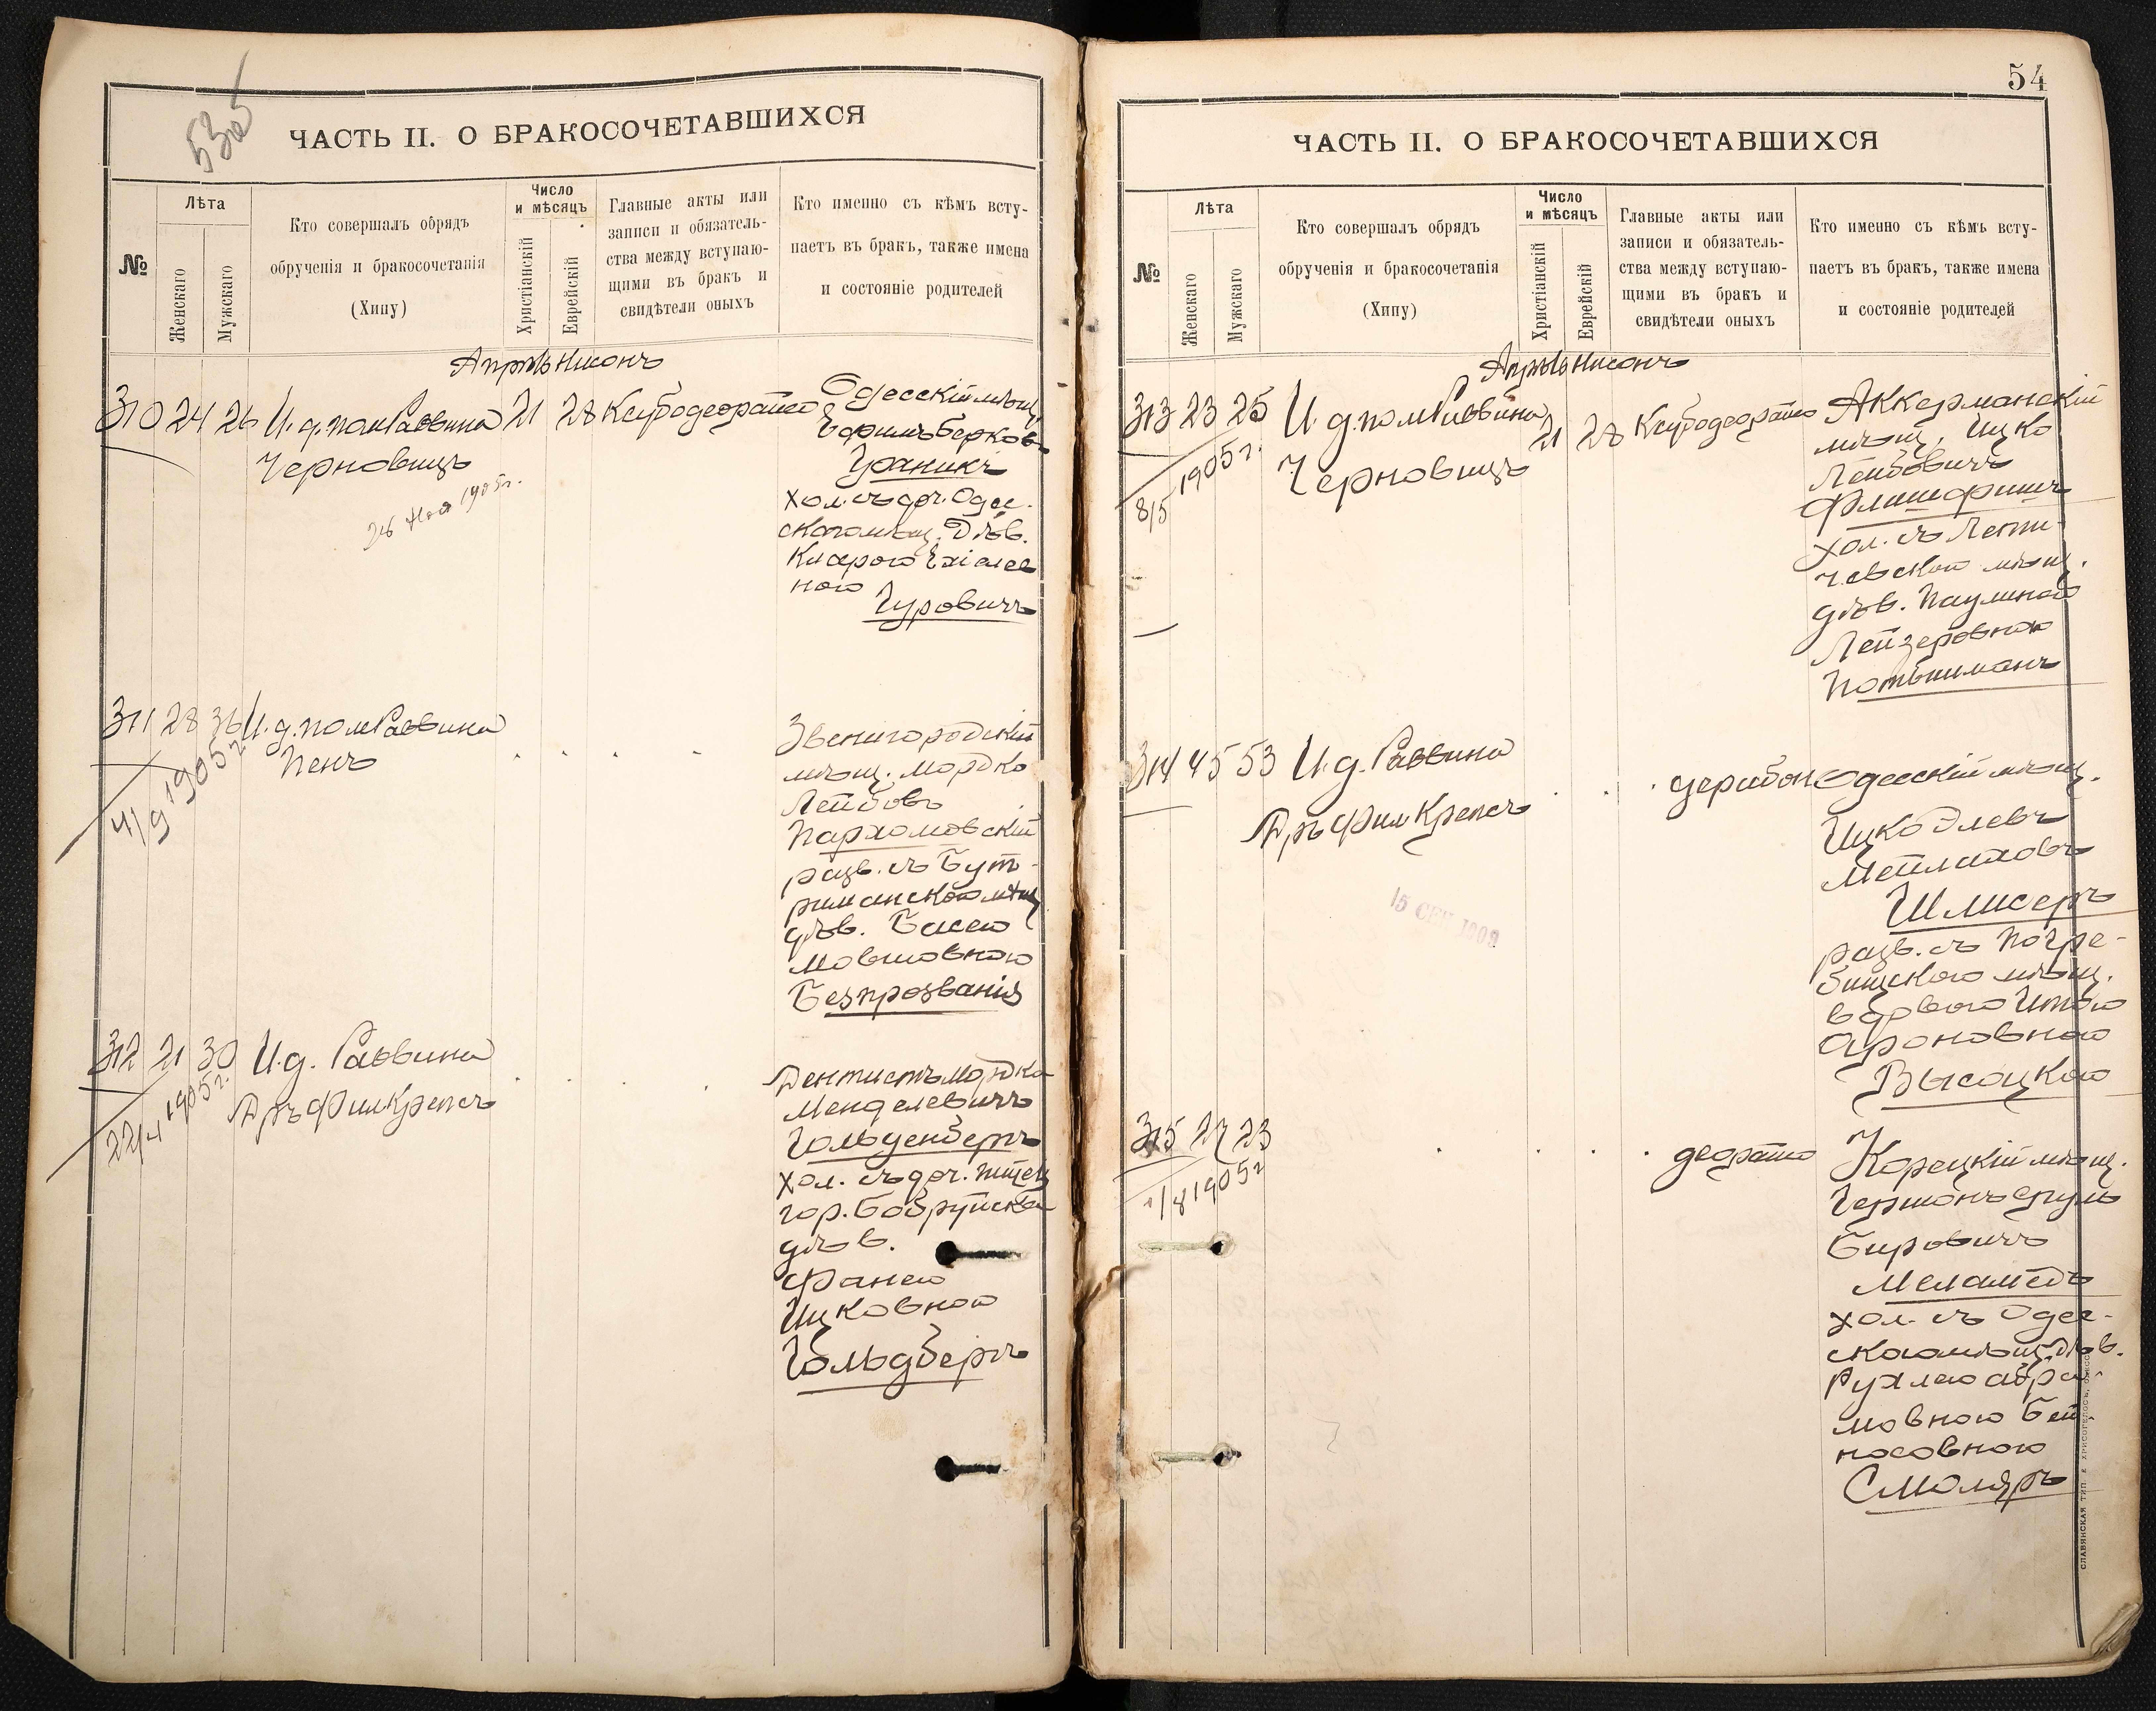 53об
ЧАСТЬ II. О БРАКОСОЧЕТАВШИХСЯ
№
Лѣта
Женскаго
Мужскаго
Кто совершалъ обрядъ
обрученія и бракосочетанія
(Хипу)
Число
и мѣсяцъ
Христіанскій
Еврейскій
Главные акты или
записи и обязатель-
ства между вступаю-
щими въ бракъ и
свидѣтели оныхъ
Кто именно съ кѣмъ всту-
паетъ въ бракъ, также имена
и состояніе родителей
Апрѣль Нисонъ
310 24 26 И. д. пом Раввина 21 28 Ксубодеорайто
Черновицъ
26 1905 г.
Одесскій мѣщ.
Ефимъ Берков.
хол. съ доч. Одес-
скаго мѣщ. Дѣв.
ною
Гуровичъ
311 28 36 И. д. пом Раввина
Пенъ
4/9 1905 г.
Звенигородскій
мѣщ. Мордко
Лейбовъ
Пархомовскій
разв. съ Бут-
риманской мѣщ
дѣв. Басею
Мовшовною
Безпрозванія
312 21 30 И. д. Раввина
Дръ Фил Крепсъ
22/4 1905 г.
Дентистъ Мордко
Менделевичъ
Гольденбергъ
хол. съ доч.
гор. Бобруйска
дѣв.
Фанею
Ицковною
Гольдбергъ
54
ЧАСТЬ II. О БРАКОСОЧЕТАВШИХСЯ
№
Лѣта
Женскаго
Мужскаго
Кто совершалъ обрядъ
обрученія и бракосочетанія
(Хипу)
Число
и мѣсяцъ
Христіанскій
Еврейскій
Главные акты или
записи и обязатель-
ства между вступаю-
щими въ бракъ и
свидѣтели оныхъ
Кто именно съ кѣмъ всту-
паетъ въ бракъ, также имена
и состояніе родителей
Апрѣль Нисонъ
313 23 25 И. д. пом Раввина 21 28 Ксубодеорайто
Черновицъ
8/5 1905 г.
Аккерманскій
мѣщ. Ицко
Лейбовичъ
хол. съ Лети-
чевской мѣщ.
дѣв. Паулиною
Лейзеровною
314 45 53 И. д. Раввина
Дръ Фил Крепсъ
15 СЕН
дерабон
Одесскій мѣщ.
Ицко Элевъ
Мейлиховъ
Шлисеръ
разв. съ Погре-
бищскою мѣщ.
вдовою Итою
Ароновною
Высоцкою
315 27 23
1/8 1905 г
деорайто
Корецкій мѣщ.
Гершонъ Сруль
Беровичъ
Меламедъ
хол. съ Одес-
ской мѣщ. дѣв.
Рухлею Абра-
мовною Бей-
носовною
Смоляръ
СЛАВЯНСКАЯ ТИП. Е. ХРИСОГЕЛОСЪ, ОДЕССА